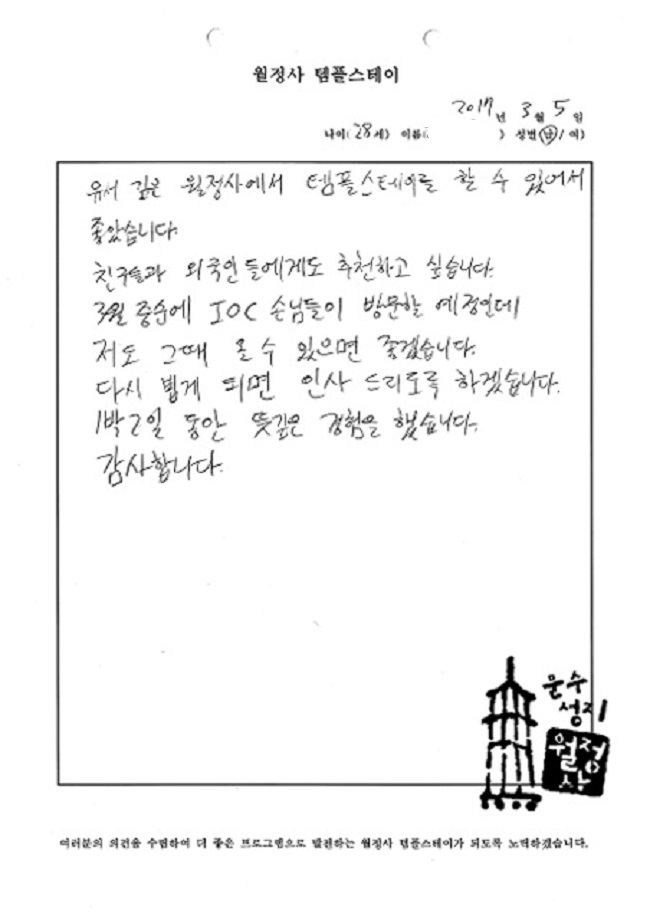 월정사 템플스테이
2017년 3월 5일
나이(28세) 이름( ) 성별(남/여)
유서 깊은 월정사에서 템플스테이를 할 수 있어서
좋았습니다.
친구들과 외국인들에게도 추천하고 싶습니다.
3월 중순에 IOC 손님들이 방문할 예정인데
저도 그때 올 수 있으면 좋겠습니다.
다시 뵙게 되면 인사 드리도록 하겠습니다.
1박2일 동안 뜻깊은 경험을 했습니다.
감사합니다.
문수
성지
월정
사
여러분의 의견을 수렴하여 더 좋은 프로그램으로 발전하는 월정사 템플스테이가 되도록 노력하겠습니다.